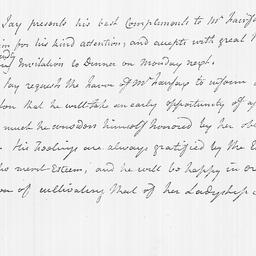 Jay presents his best Compliments to Mr Fairfax
for his kind attention, and accepts with great
Invitation to Dinner on Monday next.
Jay request the favor of Mr Fairfax to inform
that he will take an early opportunity of
much he considers himself honored by her
His Feelings are always gratified by the
who merit Esteem, and he will be happy in
of cultivating that of her Ladyship